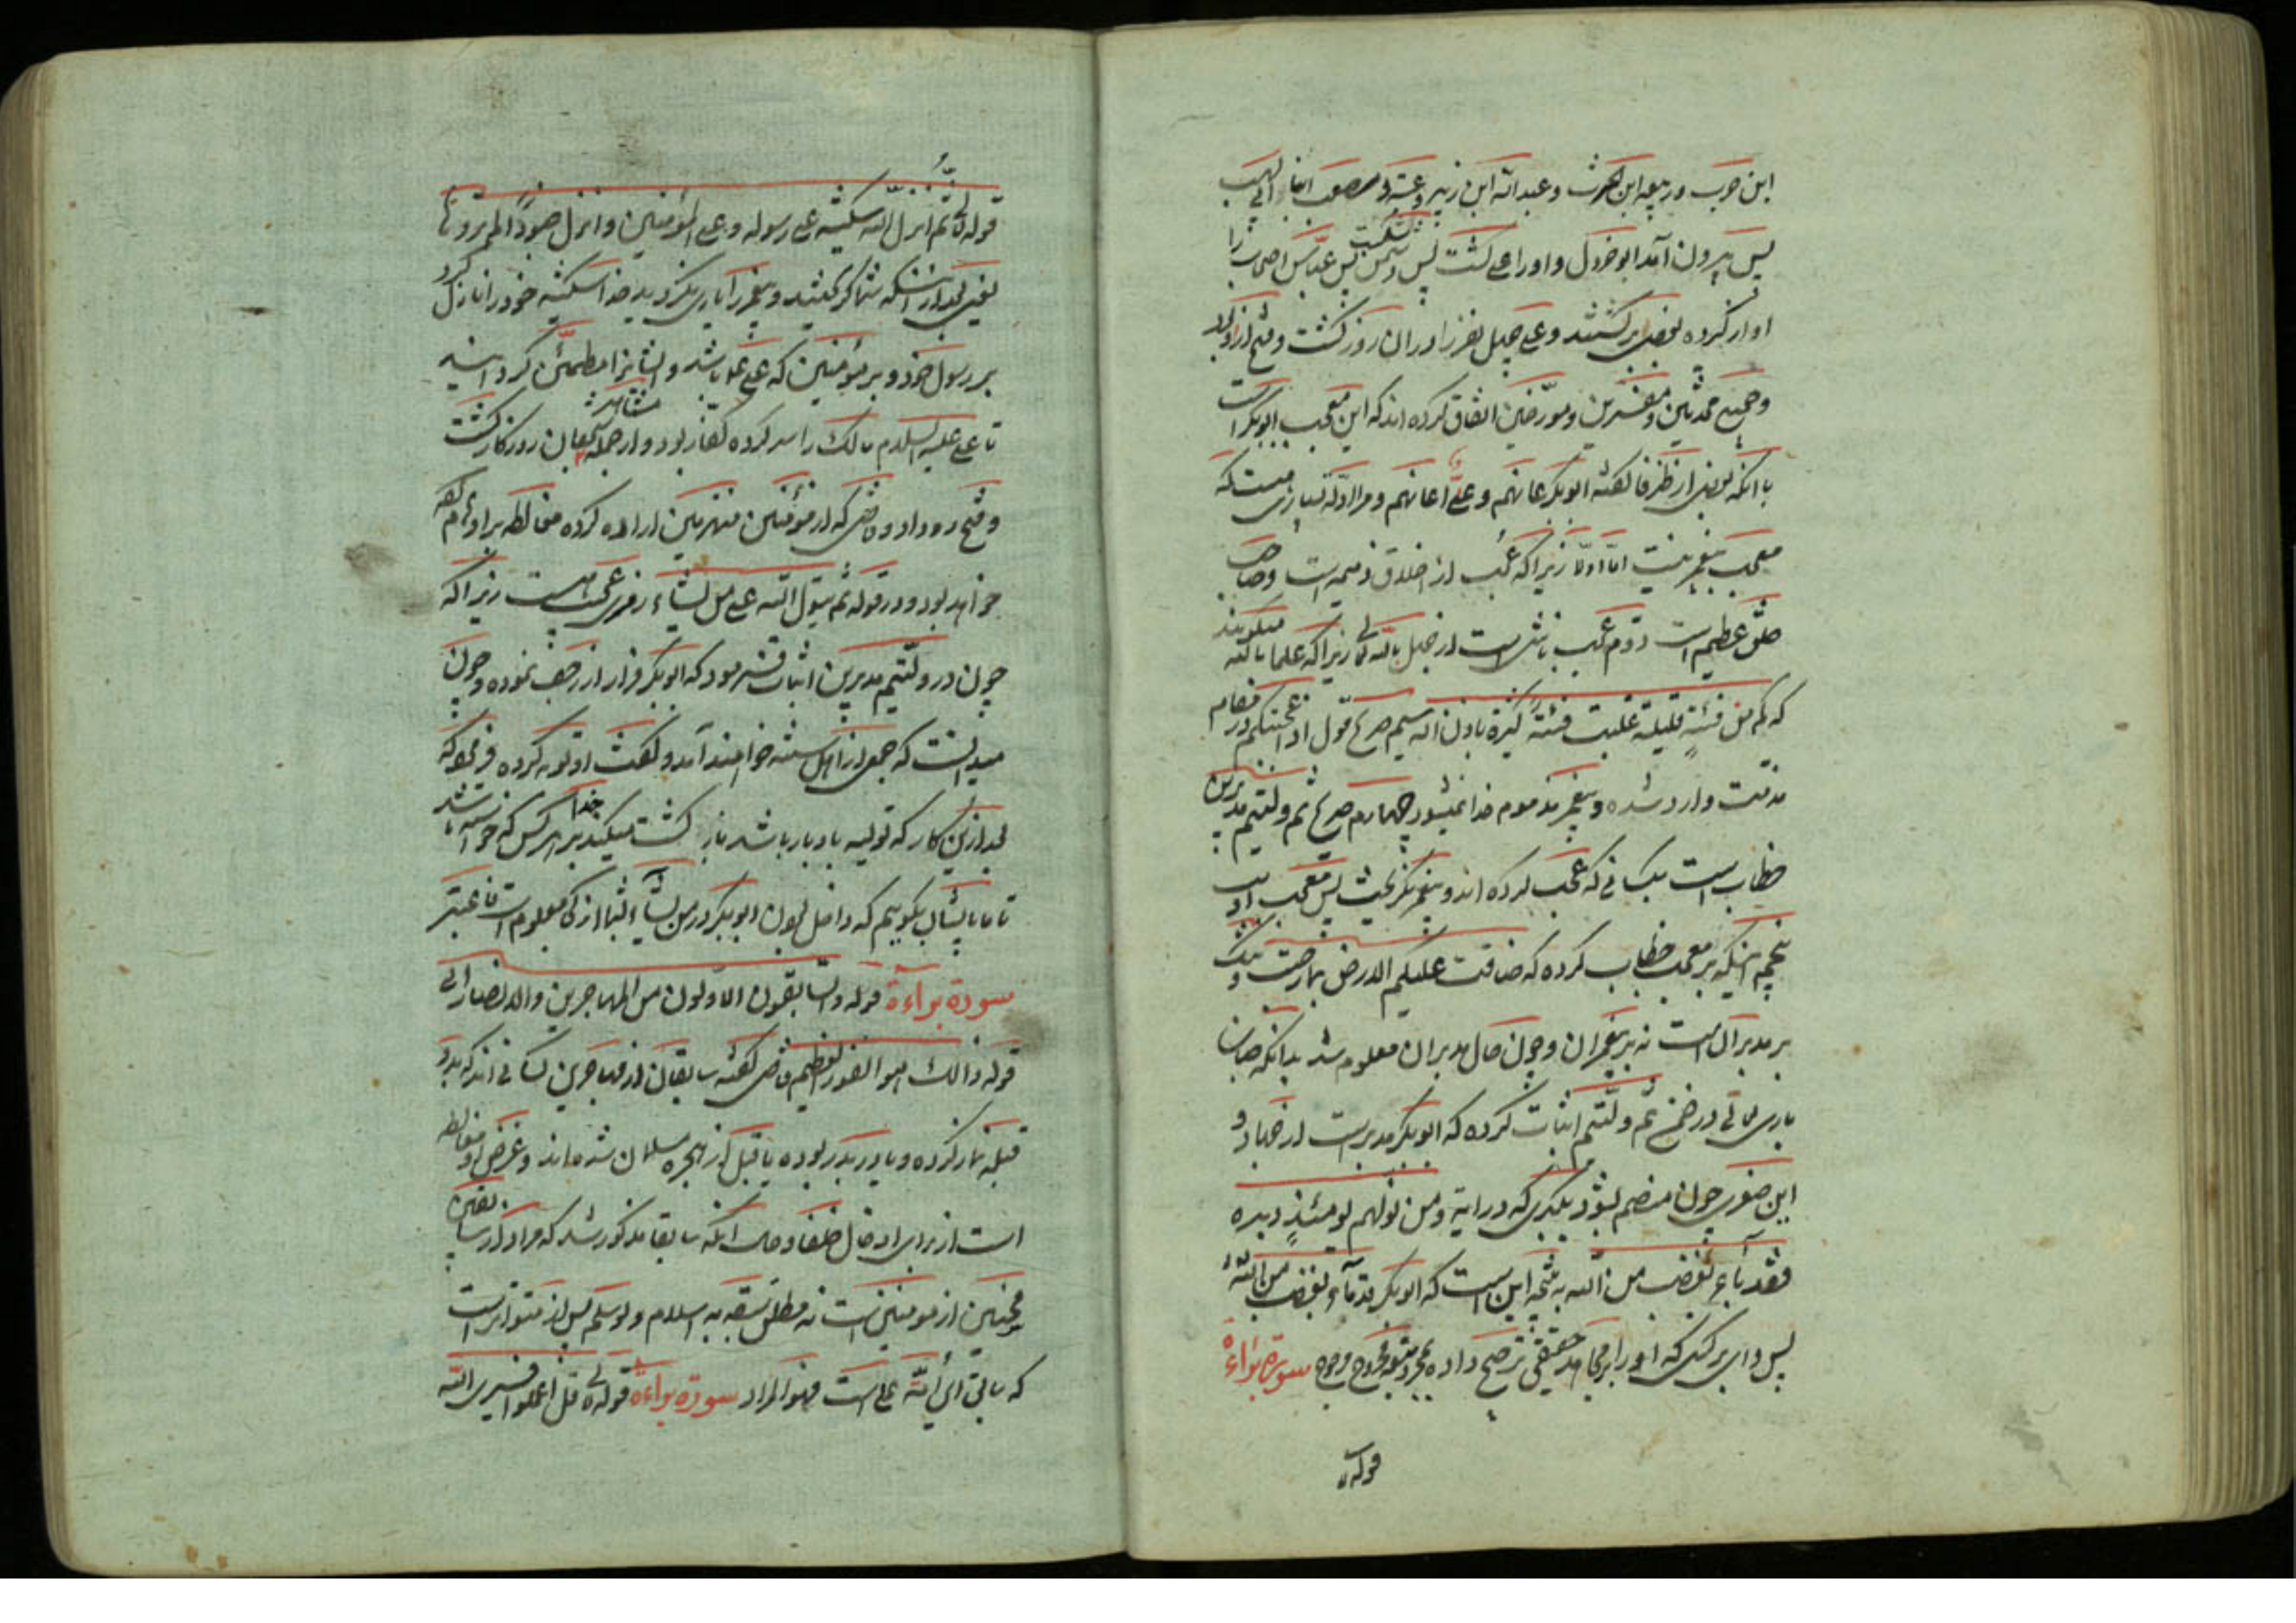 ابن حرب و ربیعه ابن الحرث و عبدالله ابن زبیر و عتبه و معتب ابنا ابی لهب
پس بیرون آمد ابو جرول و او را علی کشت پس دشمن شکست پس عباس اصحاب را
آواز کرده بعضی برگشتند و علی چهل نفر را در آن روز کشت و فتح از او بود
و جمیع محدثین و مفسرین و مورخین اتفاق کرده اند که این معجب ابوبکر است
با آنکه بعضی از ظرفا گفته ابوبکر عانهم و علی اعانهم و مرا ادله بسیاری هست که
معجب پیغمبر نیست اما اولا زیرا که عجب از اخلاق ذمیمه است و صاحب
خلق عظیم است دوم عجب ناشی است از جهل بالله تعالی زیرا که علما بالله میگویند
که کم من فئة قلیلة غلبت فئة کثیرة باذن الله سیم صریح قول اذ اعجبتکم در مقام
مذمت وارد شده و پیغمبر مذموم خدا نمیشود چهارم صریح ثم ولیتم مدبرین
خطاب است بکسانی که عجب کرده اند و پیغمبر نگریخت پس معجب او نیست
پنجم اینکه بر معجب خطاب کرده که ضاقت علیکم الارض بما رحبت و تنگ
بر مدبران است نه بر پیغمبران و چون حال مدبران معلوم شد بدانکه جناب
باری تعالی در ضمن ثم ولیتم اثبات کرده که ابوبکر مدبر است از جهاد و
این صغری چون منضم بشود بکبری که در آیه و من یولهم یومئذ دبره
فقد باء بغضب من الله نتیجه این است که ابوبکر قد باء بغضب من الله
پس وای بر کسی که او را بر مجاهد حقیقی ترجیح داده سورة براءة
قوله
قوله تعالی ثم انزل الله سکینته علی رسوله و علی المؤمنین و انزل جنودا لم تروها
یعنی بعد از آنکه شما گریختید و پیغمبر را یاری نکردید خدا سکینه خود را نازل کرد
بر رسول خود و بر مؤمنین که علی باشد و ایشانرا مطمئن گردانید
تا علی علیه السلام مالک را سر کرده کفار بود و از جمله شجعان روزگار کشت
و فتح رو داد و قاضی که از مؤمنین منهزمین اراده کرده مغالطه
خواهد بود و در قوله ثم یتوب الله علی من یشاء رمزی عجب است زیرا که
چون در ولیتم مدبرین اثبات فرمود که ابوبکر فرار از زحف نموده و چون
میدانست که جمعی از اهل سنة خواهند آمد و گفت او توبه کرده فرمود که
بعد از این کار که تولیه باد بار باشد باز گشت میکند خدا بر هر کس که خواسته باشد
تا ما بایشان بگوییم که داخل بودن ابوبکر در من یشاء شما از کی معلوم است فاعتبر
سورة براءة قوله و السابقون الاولون من المهاجرین و الانصار الی
قوله ذالک هو الفوز العظیم قاضی گفته سابقان از مهاجرین کسانی اند که بدو
قبله نماز کرده و یا در بدر بوده یا قبل از هجره مسلمان شده اند و غرض او مغالطه
است از برای ادخال خلفا و حال آنکه سابقا مذکور شد که مراد از سابقین
همچنین از مومنین است نه مطلق سبقه به اسلام و لو سلم پس از متواتر است
که سابق ای ائمه علی است فهو المراد سورة براءة قوله تعالی قل اعملوا فسیری الله